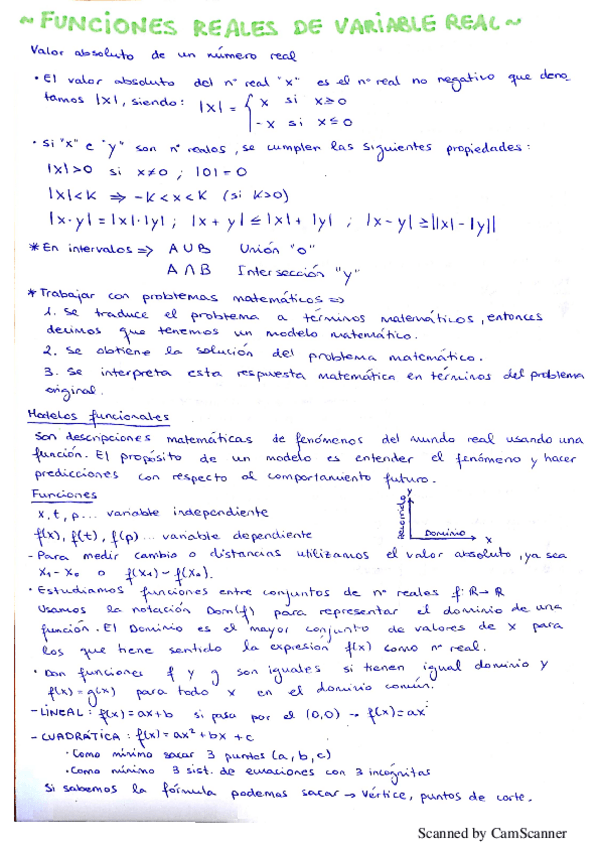 ~ FUNCIONES REALES DE VARIABLE REAL ~
Valor absoluto de un número real
• El valor absoluto del nº real "x" es el nº real no negativo que deno_
tamos |x|, siendo: |x| = { x si x≥0
-x si x≤0
• Si "x" e "y" son nº reales, se cumplen las siguientes propiedades:
|x|>0 si x≠0 ; |0|=0
|x|<K ⇒ -K<x<K (si K>0)
|x·y|=|x|·|y| ; |x+y|≤|x|+|y| ; |x-y|≥||x|-|y||
* En intervalos => A∪B Unión "o"
A∩B Intersección "y"
* Trabajar con problemas matemáticos =>
1. Se traduce el problema a términos matemáticos, entonces
decimos que tenemos un modelo matemático.
2. Se obtiene la solución del problema matemático.
3. Se interpreta esta respuesta matemática en términos del problema
original.
Modelos funcionales
Son descripciones matemáticas de fenómenos del mundo real usando una
función. El propósito de un modelo es entender el fenómeno y hacer
predicciones con respecto al comportamiento futuro.
Funciones
x, t, p ... variable independiente
f(x), f(t), f(p) ... variable dependiente
y
Recorrido
Dominio
x
- Para medir cambio o distancias utilizamos el valor absoluto, ya sea
x₁-x₀ o f(x₁)-f(x₀).
• Estudiamos funciones entre conjuntos de nº reales f: R→R
Usamos la notación Dom(f) para representar el dominio de una
función. El Dominio es el mayor conjunto de valores de x para
los que tiene sentido la expresión f(x) como nº real.
• Dan funciones f y g son iguales si tienen igual dominio y
f(x)=g(x) para todo x en el dominio común.
- LINEAL: f(x)=ax+b si pasa por el (0,0) → f(x)=ax
- CUADRÁTICA: f(x)=ax²+bx+c
• Como mínimo sacar 3 puntos (a,b,c)
• Como mínimo 3 sist. de ecuaciones con 3 incógnitas
Si sabemos la fórmula podemos sacar → Vértice, puntos de corte.
Scanned by CamScanner